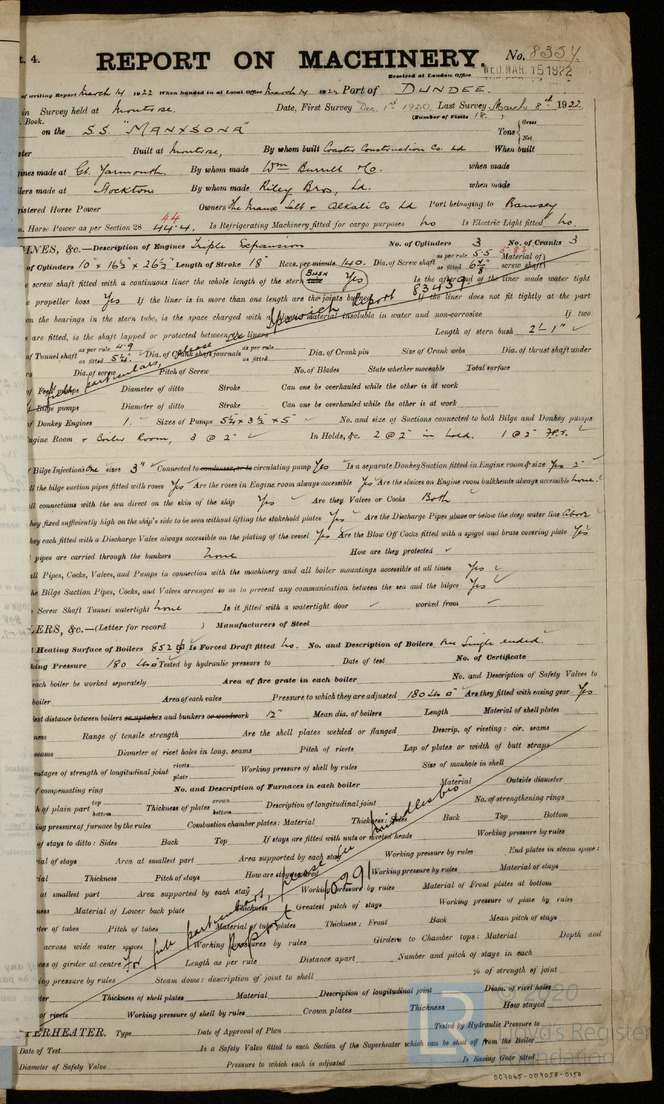 t. 4. REPORT ON MACHINERY. No. 8351.
Received at London Office WED. MAR. 15 1922
of writing Report March 14 1922 When handed in at Local Office March 14 1922 Port of DUNDEE.
in Survey held at Montrose. Date, First Survey Dec. 1st 1920. Last Survey March 8th 1922
Book. (Number of Visits 18.)
on the S.S. "MANXSONA" Tons { Gross Net
Built at Montrose, By whom built Coaster Construction Co. Ld When built
gines made at Gt. Yarmouth. By whom made Wm Burrell & Co. when made
lers made at Stockton By whom made Riley Bros, Ld. when made
istered Horse Power Owners The Manx Salt & Alkali Co Ld Port belonging to Ramsey
Horse Power as per Section 28 44 44.4. Is Refrigerating Machinery fitted for cargo purposes No Is Electric Light fitted No.
INES, &c.—Description of Engines Triple Expansion No. of Cylinders 3 No. of Cranks 3
of Cylinders 10" x 16½ x 26½" Length of Stroke 18" Revs. per minute 140. Dia. of Screw shaft as per rule 5.5 as fitted Material of screw shaft
screw shaft fitted with a continuous liner the whole length of the stern tube Yes Is the after end of the liner made water tight
propeller boss Yes If the liner is in more than one length are the joints burned If the liner does not fit tightly at the part
n the bearings in the stern tube, is the space charged with a plastic material insoluble in water and non-corrosive If two
are fitted, is the shaft lapped or protected between the liners Length of stern bush 2'-1"
of Tunnel shaft as per rule 4.9 as fitted Dia. of Crank shaft journals as per rule as fitted Dia. of Crank pin Size of Crank webs Dia. of thrust shaft under
Dia. of screw Pitch of Screw No. of Blades State whether moveable Total surface
of Feed pumps Diameter of ditto Stroke Can one be overhauled while the other is at work
Bilge pumps Diameter of ditto Stroke Can one be overhauled while the other is at work
full particulars, please see Ipswich Report 83459
of Donkey Engines 1. Sizes of Pumps 5¼ x 3½ x 5 No. and size of Suctions connected to both Bilge and Donkey pumps
ngine Room & Boiler Room, 3 @ 2" In Holds, &c. 2 @ 2" in hold. 1 @ 2"
Bilge Injections One sizes 3" Connected to condenser, or to circulating pump Yes Is a separate Donkey Suction fitted in Engine room & size Yes 2"
ll the bilge suction pipes fitted with roses Yes Are the roses in Engine room always accessible Yes Are the sluices on Engine room bulkheads always accessible None
ll connections with the sea direct on the skin of the ship Yes Are they Valves or Cocks Both
hey fixed sufficiently high on the ship's side to be seen without lifting the stokehold plates Yes Are the Discharge Pipes above or below the deep water line Above
hey each fitted with a Discharge Valve always accessible on the plating of the vessel Yes Are the Blow Off Cocks fitted with a spigot and brass covering plate Yes
pipes are carried through the bunkers None How are they protected
ll Pipes, Cocks, Valves, and Pumps in connection with the machinery and all boiler mountings accessible at all times Yes
he Bilge Suction Pipes, Cocks, and Valves arranged so as to prevent any communication between the sea and the bilges Yes
Screw Shaft Tunnel watertight None Is it fitted with a watertight door worked from
ERS, &c.—(Letter for record ) Manufacturers of Steel
Heating Surface of Boilers 852 Is Forced Draft fitted No. No. and Description of Boilers One Single ended.
king Pressure 180 Tested by hydraulic pressure to Date of test No. of Certificate
each boiler be worked separately Area of fire grate in each boiler No. and Description of Safety Valves to
boiler Area of each valve Pressure to which they are adjusted 180 Are they fitted with easing gear Yes
lest distance between boilers or uptakes and bunkers or woodwork 12" Mean dia. of boilers Length Material of shell plates
ness Range of tensile strength Are the shell plates welded or flanged Descrip. of riveting : cir. seams
seams Diameter of rivet holes in long. seams Pitch of rivets Lap of plates or width of butt straps
entages of strength of longitudinal joint rivets plate Working pressure of shell by rules Size of manhole in shell
of compensating ring No. and Description of Furnaces in each boiler Material Outside diameter
h of plain part top bottom Thickness of plates crown bottom Description of longitudinal joint No. of strengthening rings
ing pressure of furnace by the rules Combustion chamber plates : Material Thickness : Sides Back Top Bottom
of stays to ditto : Sides Back Top If stays are fitted with nuts or riveted heads Working pressure by rules
ial of stays Area at smallest part Area supported by each stay Working pressure by rules End plates in steam space :
ial Thickness Pitch of stays How are stays secured Working pressure by rules Material of stays
at smallest part Area supported by each stay Working pressure by rules Material of Front plates at bottom
ness Material of Lower back plate Thickness Greatest pitch of stays Working pressure of plate by rules
er of tubes Pitch of tubes Material of tube plates Thickness : Front Back Mean pitch of stays
across wide water spaces Working pressures by rules Girders to Chamber tops : Material Depth and
ness of girder at centre Length as per rule Distance apart Number and pitch of stays in each
ing pressure by rules Steam dome : description of joint to shell % of strength of joint
ter Thickness of shell plates Material Description of longitudinal joint Diam. of rivet holes
of rivets Working pressure of shell by rules Crown plates Thickness How stayed
for full particulars, please see Middlesbro Report
ERHEATER. Type Date of Approval of Plan Tested by Hydraulic Pressure to
Date of Test Is a Safety Valve fitted to each Section of the Superheater which can be shut off from the Boiler
Diameter of Safety Valve Pressure to which each is adjusted Is Easing Gear fitted
LR © 2020
Lloyd's Register
Foundation
007045-007058-0150